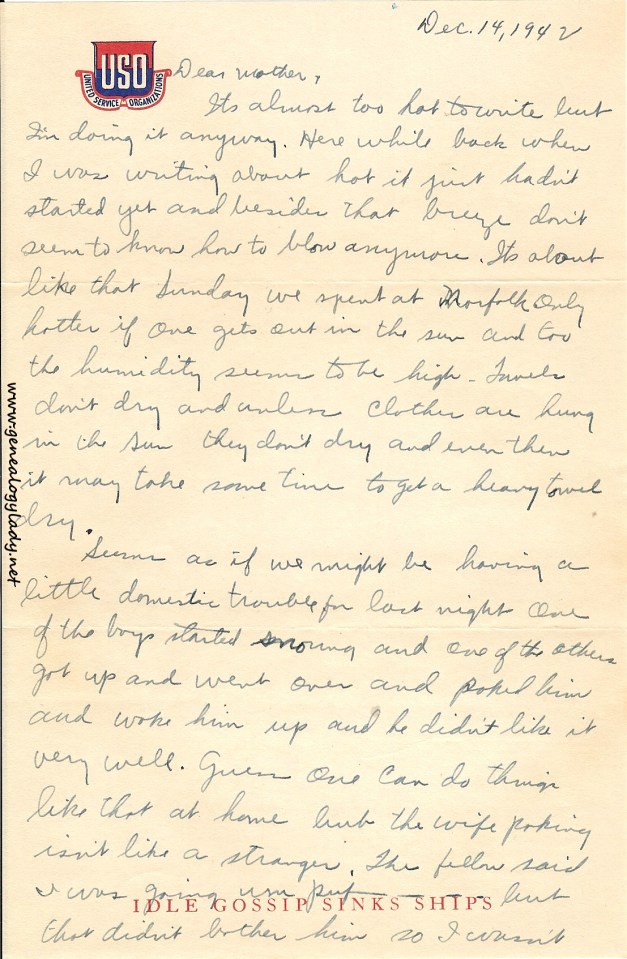 Dec. 14, 1942
USO
UNITED SERVICE ORGANIZATIONS
Dear Mother,
Its almost too hot to write but
I'm doing it anyway. Here while back when
I was writing about hot it just hadn't
started yet and besides that breeze don't
seem to know how to blow anymore. Its about
like that Sunday we spent at Norfolk only
hotter if one gets out in the sun and too
the humidity seems to be high - Towels
don't dry and unless clothes are hung
in the sun they don't dry and even then
it may take some time to get a heavy towel
dry.
Seems as if we might be having a
little domestic trouble for last night one
of the boys started snoring and one of the others
got up and went over and poked him
and woke him up and he didn't like it
very well. Guess one can do things
like that at home but the wife poking
isn't like a stranger. The fellow said
I was going - - - - but
IDLE GOSSIP SINKS SHIPS
that didn't bother him so I wasn't
www.genealogylady.net